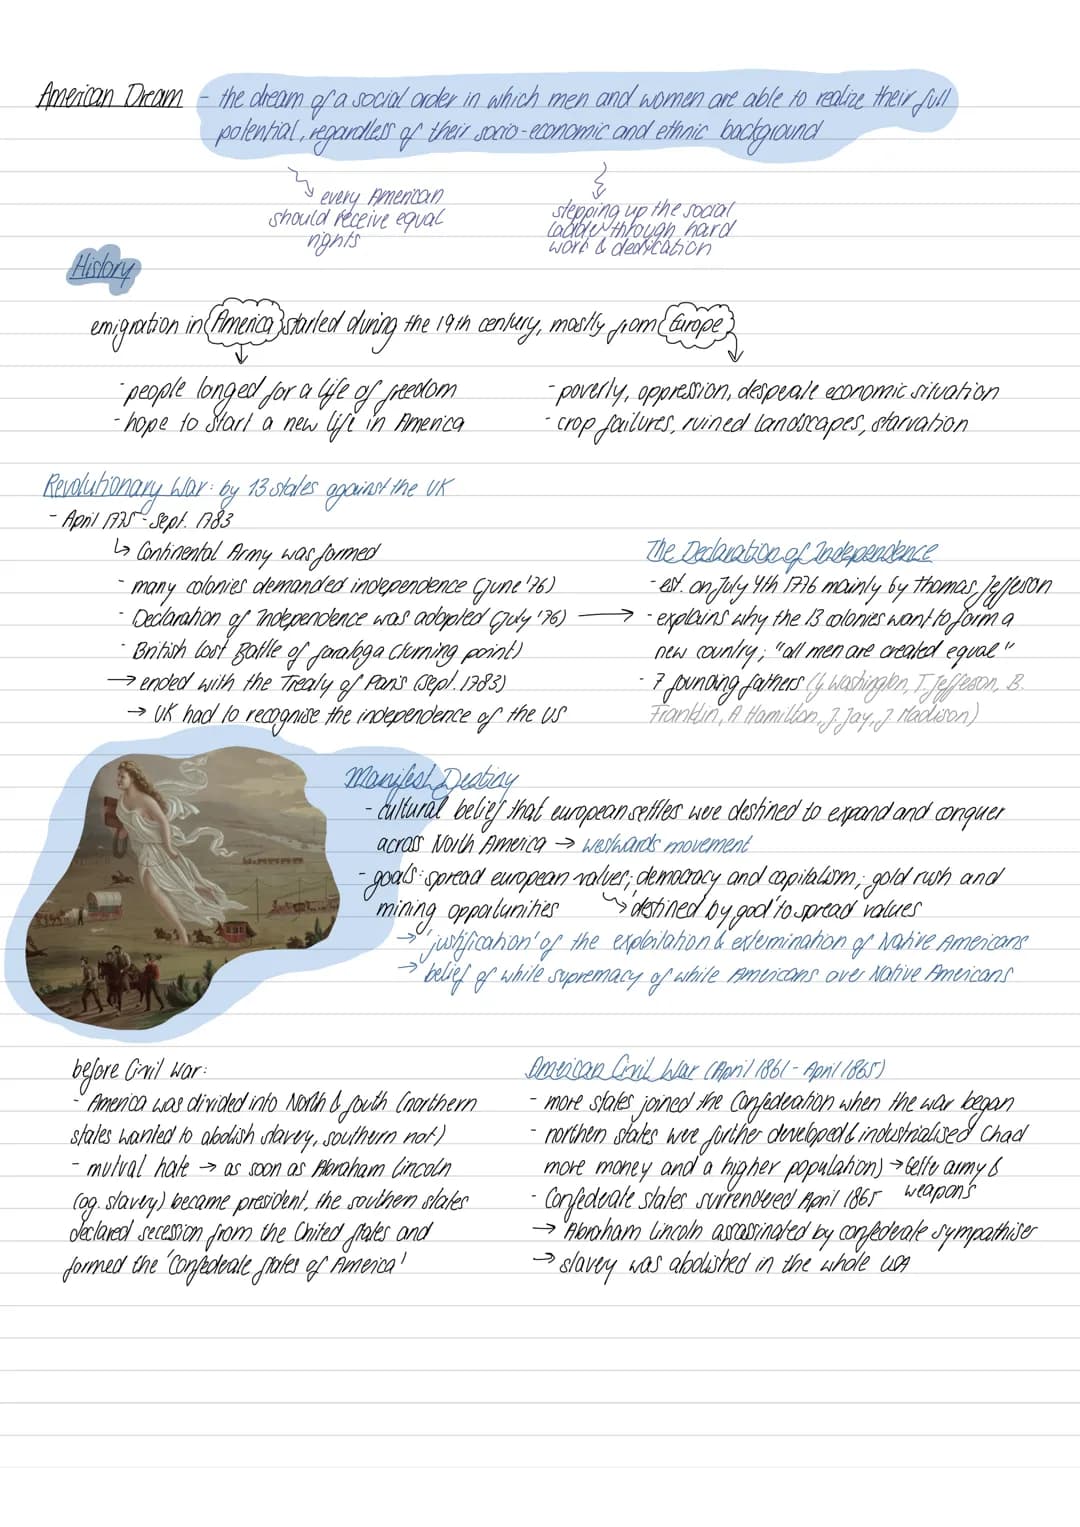 American Dream - the dream of a social order in which men and women are able to realize their full
potential, regardless of their socio-economic and ethnic background
every American
should receive equal
rights
stepping up the social
ladder through hard
work & dedication
History
emigration in America started during the 19th century, mostly from Europe
- people longed for a life of freedom
- hope to start a new life in America
- poverly, oppression, despeate economic situation
- crop failures, ruined landscapes, starvation
Revolutionary War: by 13 states against the UK
- April 1775 - Sept. 1783
↳ Continental Army was formed
- many colonies demanded independence (june '76)
- Declaration of Independence was adopted (july '76) →
- British lost Battle of Saraloga (turning point)
→ ended with the Treaty of Paris (Sept. 1783)
→ UK had to recognise the independence of the US
The Declaration of Independence
- est. on July 4th 1776 mainly by Thomas Jefferson
- explains why the 13 colonies want to form a
new country; "all men are created equal"
- 7 founding fathers (G. Washington, T. Jefferson, B.
Franklin, A Hamilton, J. Jay, J. Madison)
Manifest Destiny
- cultural belief that european settles were destined to expand and conquer
across North America → westwards movement
- goals: spread european values; democracy and capitalism; gold rush and
mining opportunities → 'destined by god' to spread values
→ 'justification' of the exploitation & extermination of Native Americans
→ belief of white supremacy of white Americans over Native Americans
before Civil War:
- America was divided into North & South (northern
states wanted to abolish slavey, southern not)
- mutual hate → as soon as Abraham Lincoln
(ag. slavey) became president, the southern states
declared secession from the United States and
formed the 'Confedeate States of America'
American Civil War (April 1861 - April 1865)
- more states joined the Confedeation when the war began
- northen states were further developed & industrialised (had
more money and a higher population) → bette army &
weapons
- Confedeate states surrendered April 1865
→ Abraham Lincoln assassinated by confedeate sympathiser
→ slavey was abolished in the whole USA